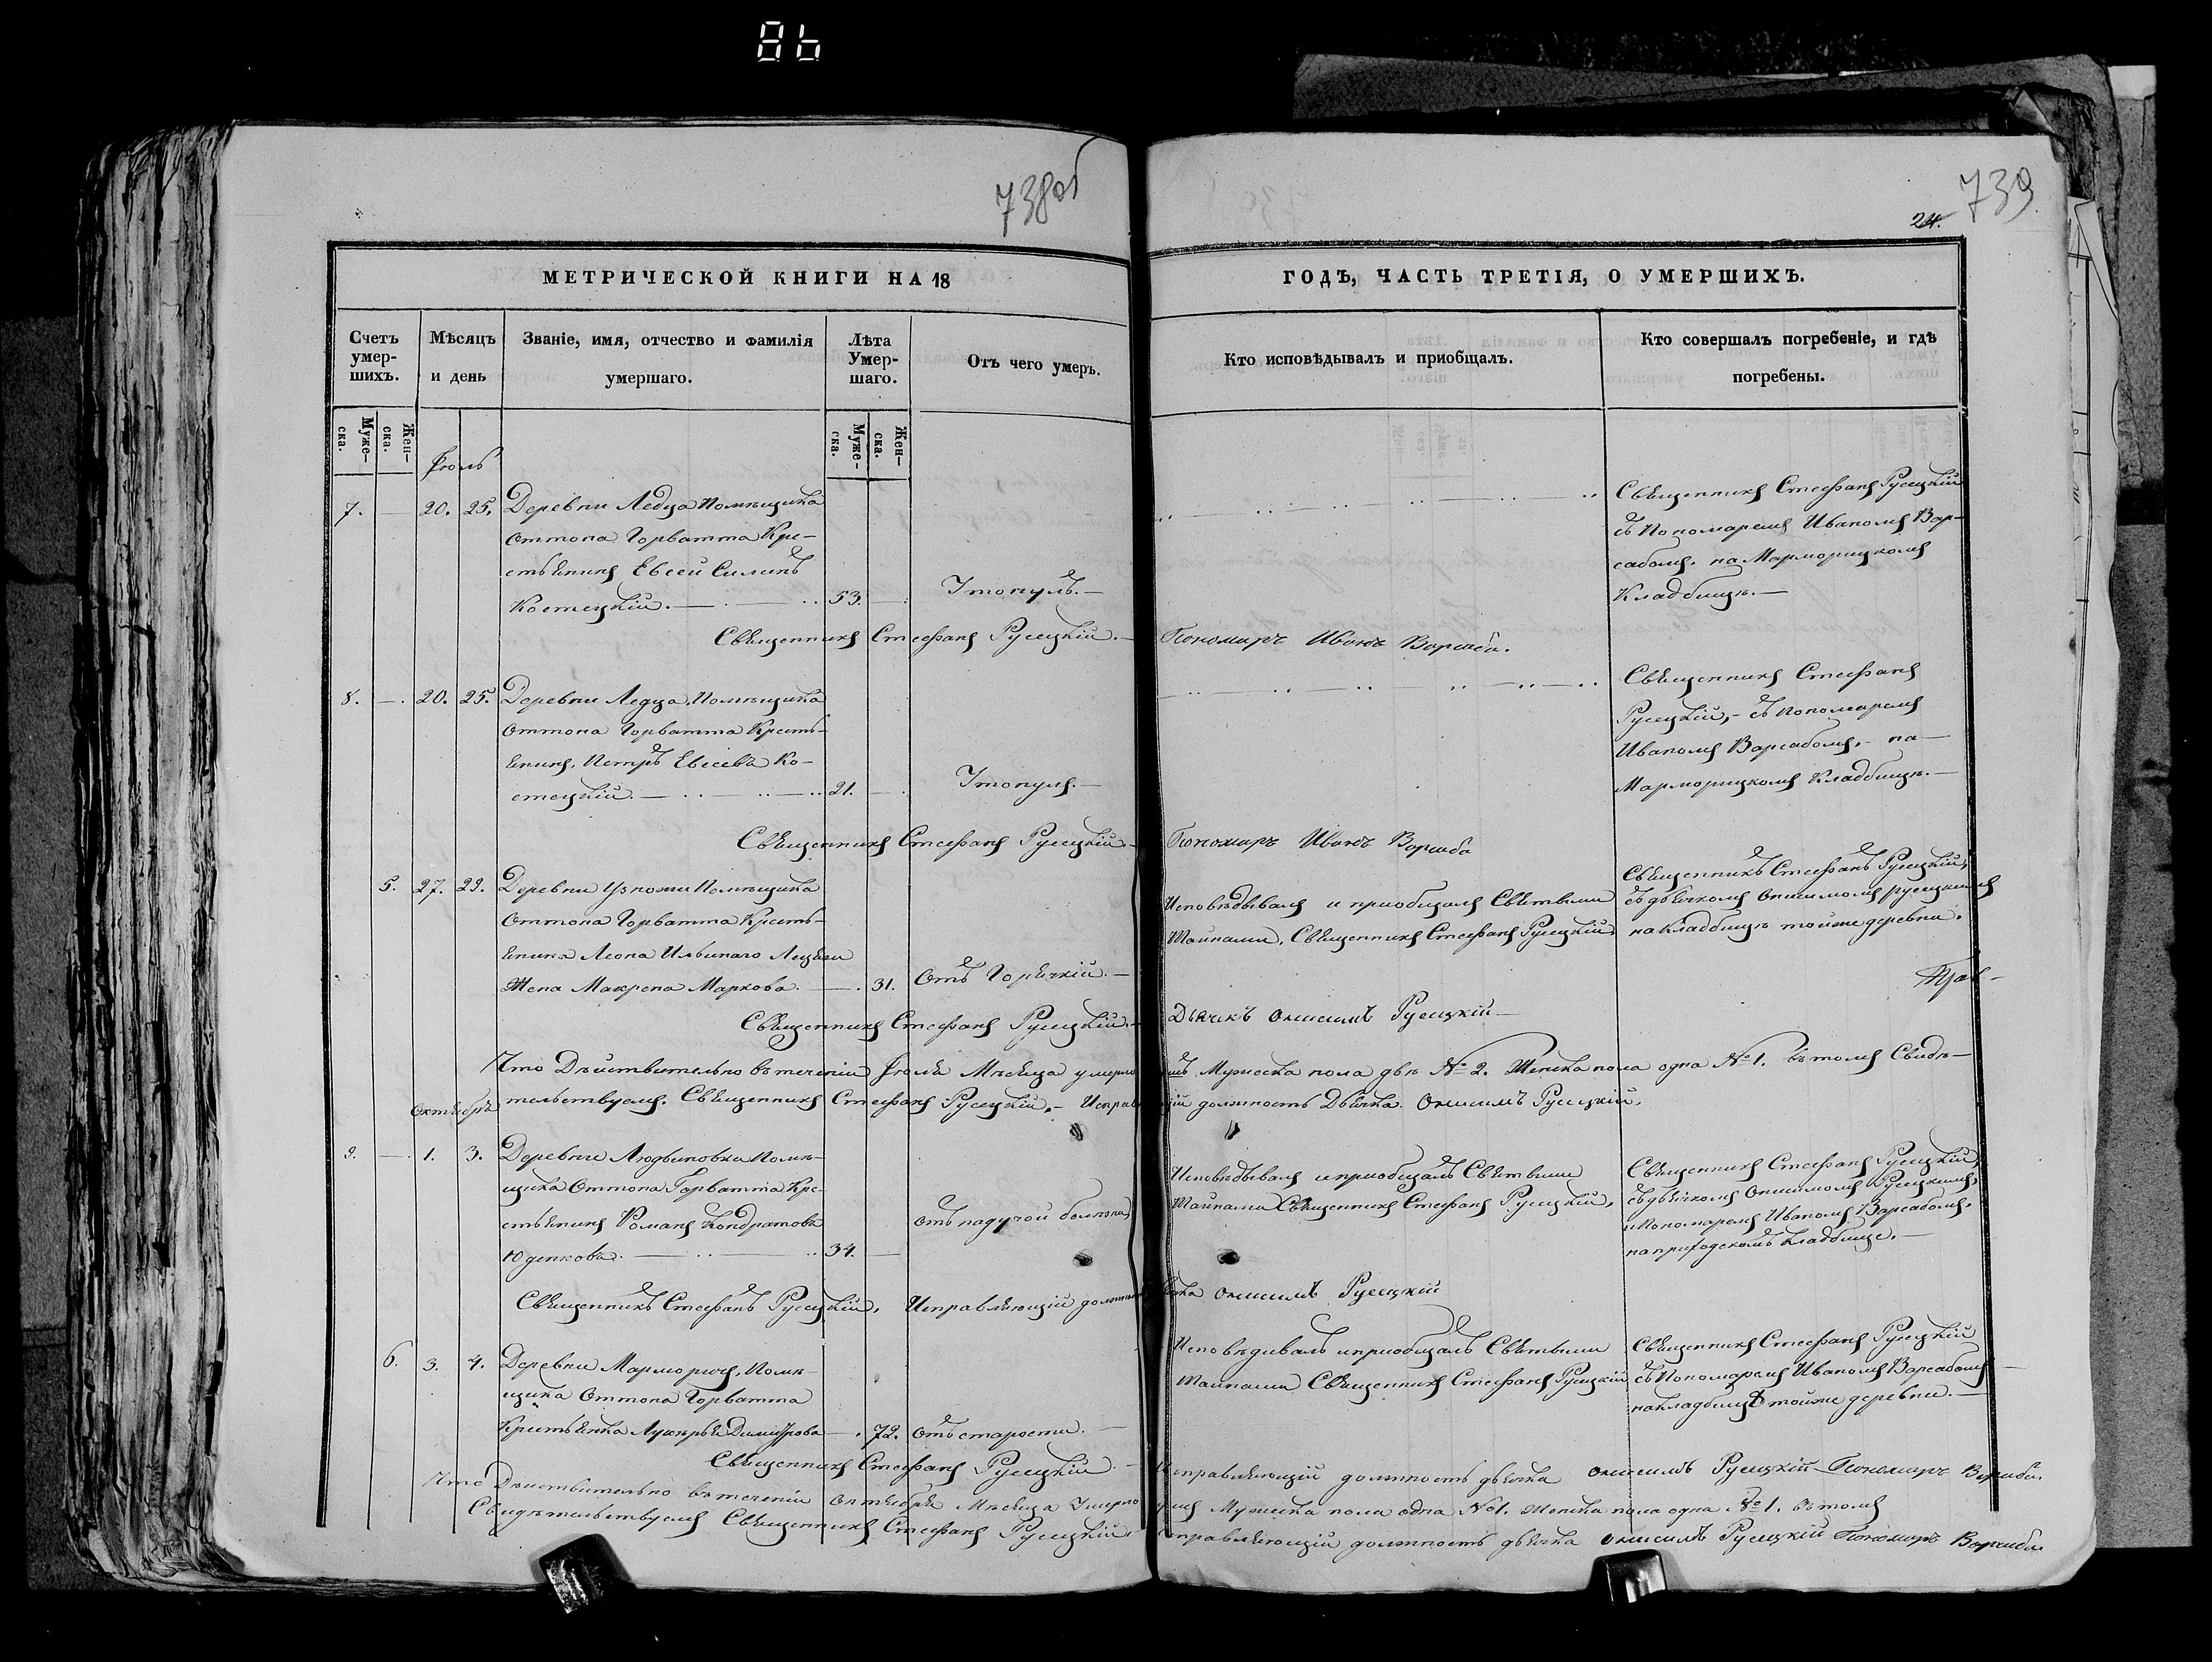 86
738об
739
24.
МЕТРИЧЕСКОЙ КНИГИ НА 18
ГОДЪ, ЧАСТЬ ТРЕТІЯ, О УМЕРШИХЪ.
Счетъ умер-шихъ.
Мѣсяцъ и день
Званіе, имя, отчество и фамилія умершаго.
Лѣта Умер-шаго.
Отъ чего умеръ.
Кто исповѣдывалъ и приобщалъ.
Кто совершалъ погребеніе, и гдѣ погребены.
Муже-ска.
Жен-ска.
Муже-ска.
Жен-ска.
Іюль
7. — 20. 25. Деревни Ледца Помѣщика
Оттона Горватта Кре-
стьянинъ Евсей Силинъ
Костецкій. — 53. — Утонулъ. —
Священникъ Стефанъ Русецкій
съ Пономаремъ Иваномъ Вар-
сабомъ. на Марморицкомъ
Кладбищѣ. —
Священникъ Стефанъ Русецкій. — Пономарь Иванъ
8. — 20. 25. Деревни Ледца, Помѣщика
Оттона Горватта Кресть-
янинъ, Петръ Евсеевъ Ко-
стецкій. — 21. — Утонулъ. —
Священникъ Стефанъ
Русецкій, — съ Пономаремъ
Иваномъ Варсабомъ, — на
Марморицкомъ Кладбищѣ. —
Священникъ Стефанъ Русецкій — Пономарь Иванъ
5. 27. 29. Деревни Узножи Помѣщика
Оттона Горватта Кресть-
янина Леона Ильинаго
Жена Макрена Маркова. — 31. Отъ Горячкій. —
Исповѣдывалъ и приобщалъ Святыми
Тайнами, Священникъ Стефанъ Русецкій,
Священникъ Стефанъ Русецкій,
съ дьячкомъ Онисимомъ Русецкимъ
на кладбищѣ тойже деревни.
Священникъ Стефанъ Русецкій. — Дьячекъ Онисимъ Русецкій —
Что Дѣйствительно въ теченіи Іюля Мѣсяца умерло
Мужеска пола двѣ № 2. Женска пола одна № 1. въ томъ Свидѣ-
тельствуемъ. Священникъ Стефанъ Русецкій. —
должность Дьячка. Онисимъ Русецкій.
Октябрь
9. — 1. 3. Деревни Людвиновки Помѣ-
щика Оттона Горватта Кре-
стьянинъ Романъ Кондратовъ
Юденкова. — 34. — отъ падучой болѣзни
Исповѣдывалъ и приобщалъ Святыми
Тайнами Священникъ Стефанъ Русецкій,
Священникъ Стефанъ Русецкій,
съ дьячкомъ Онисимомъ Русецкимъ,
и Пономаремъ Иваномъ Варсабомъ,
на приходскомъ кладбище. —
Священникъ Стефанъ Русецкій. Исправляющій
Онисимъ Русецкій
6. 3. 4. Деревни Марморичъ, Помѣ-
щика Оттона Горватта
Крестьянка Лукерья Димитрова — 72. отъ старости. —
Исповѣдивалъ и приобщалъ Святыми
Тайнами Священникъ Стефанъ Русецкій
Священникъ Стефанъ Русецкій
съ Пономаремъ Иваномъ Варсабомъ —
на кладбищѣ тойже деревни. —
Священникъ Стефанъ Русецкій. —
Исправляющій должность дьячка Онисимъ Русецкій — Пономарь
Что Дѣйствительно въ теченіи Октября Мѣсяца Умерло
Мужеска пола одна № 1. Женска пола одна № 1. въ томъ
Свидѣтельствуемъ Священникъ Стефанъ Русецкій.
Исправляющій должность дьячка Онисимъ Русецкій Пономарь